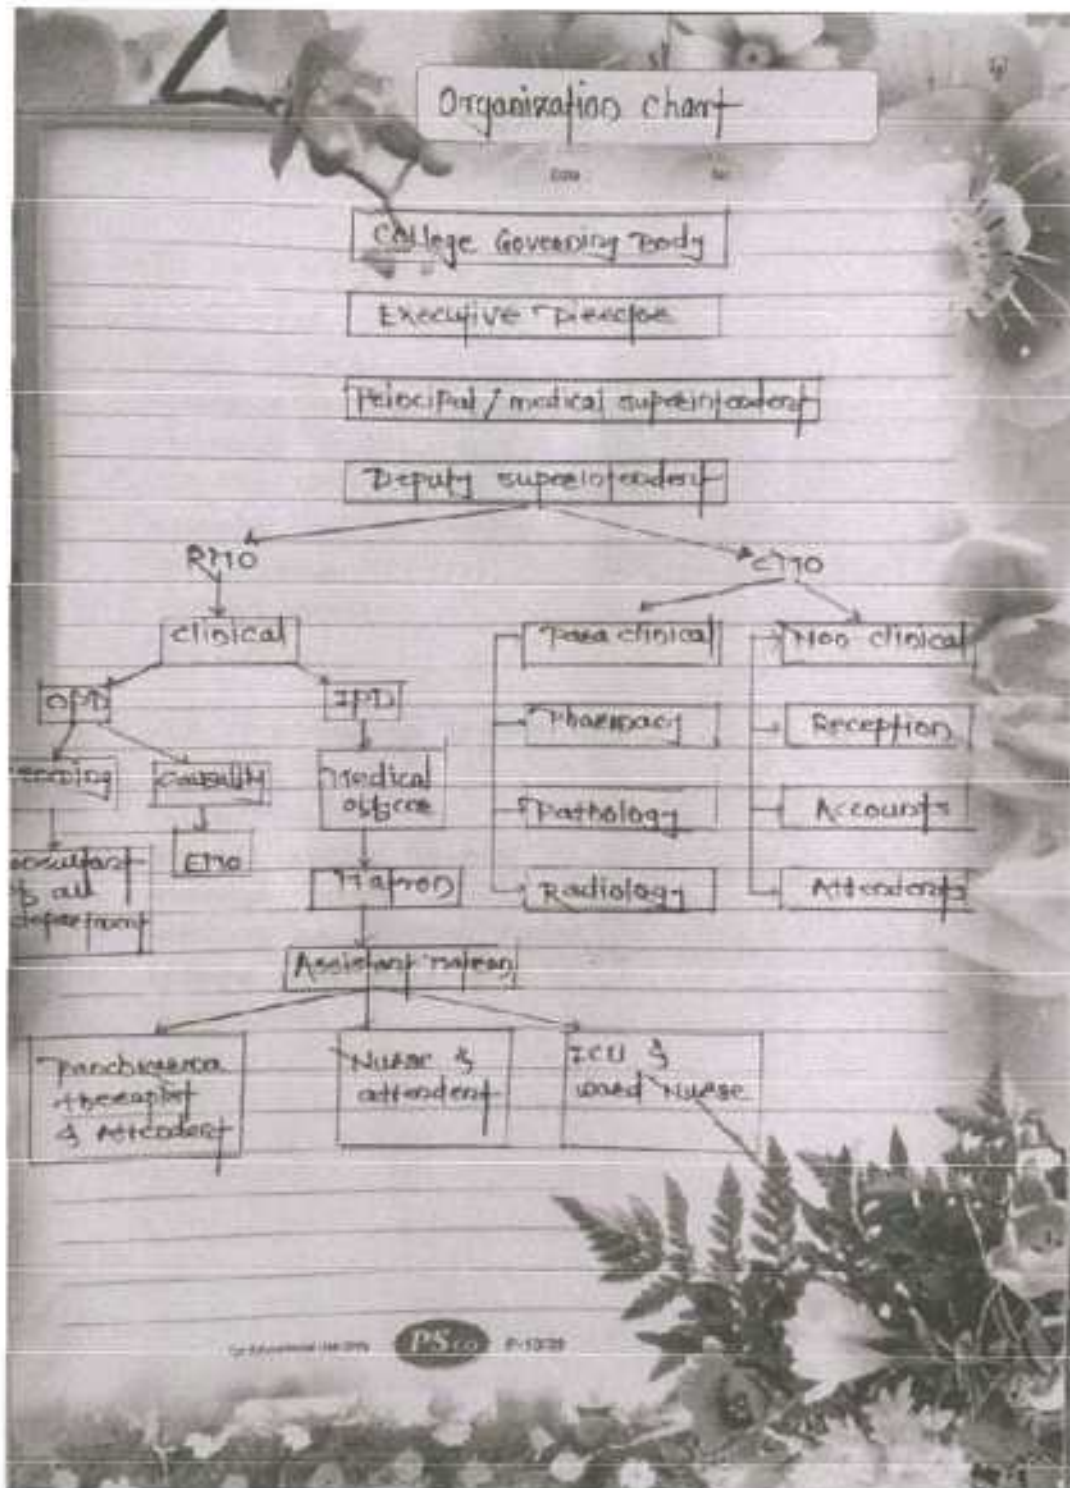 Organization chart
Date :
No :
College Governing Body
Executive Director
Principal / medical superintendent
Deputy superintendent
RMO
CMO
clinical
Para clinical
Non clinical
OPD
IPD
Pharmacy
Reception
Causality
Medical
officer
Pathology
Accounts
EMO
of all
department
Matron
Radiology
Attendents
Assistant matron
Panchkarma
therapist
& Attendent
Nurse &
attendent
ICU &
ward Nurse
PSco